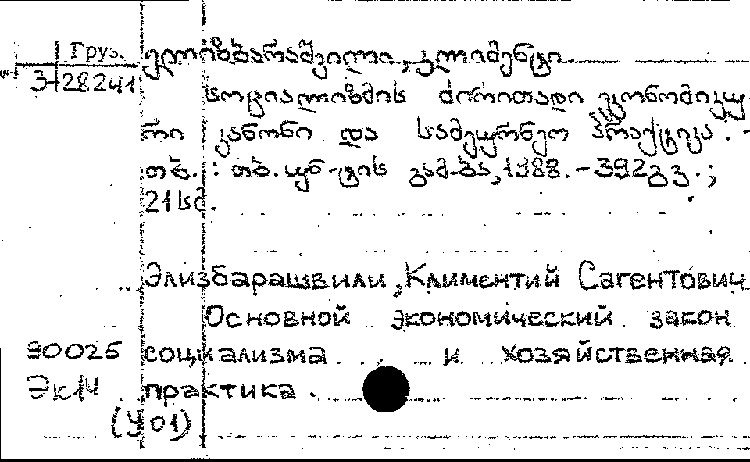 Груз. ელიზბარაშვილი, კლიმენტი
3-28241
სოციალიზმის ძირითადი ეკონომიკუ
რი კანონი და სამეურნეო პრაქტიკა. -
თბ. : თბ. უნ-ტის გამ-ბა, 1988. - 392გვ. ;
21 სმ.
Элизбарашвили, Климентий Сагентович
Основной экономический закон
90025 социализма и хозяйственная
Эк14 практика.
(У01)